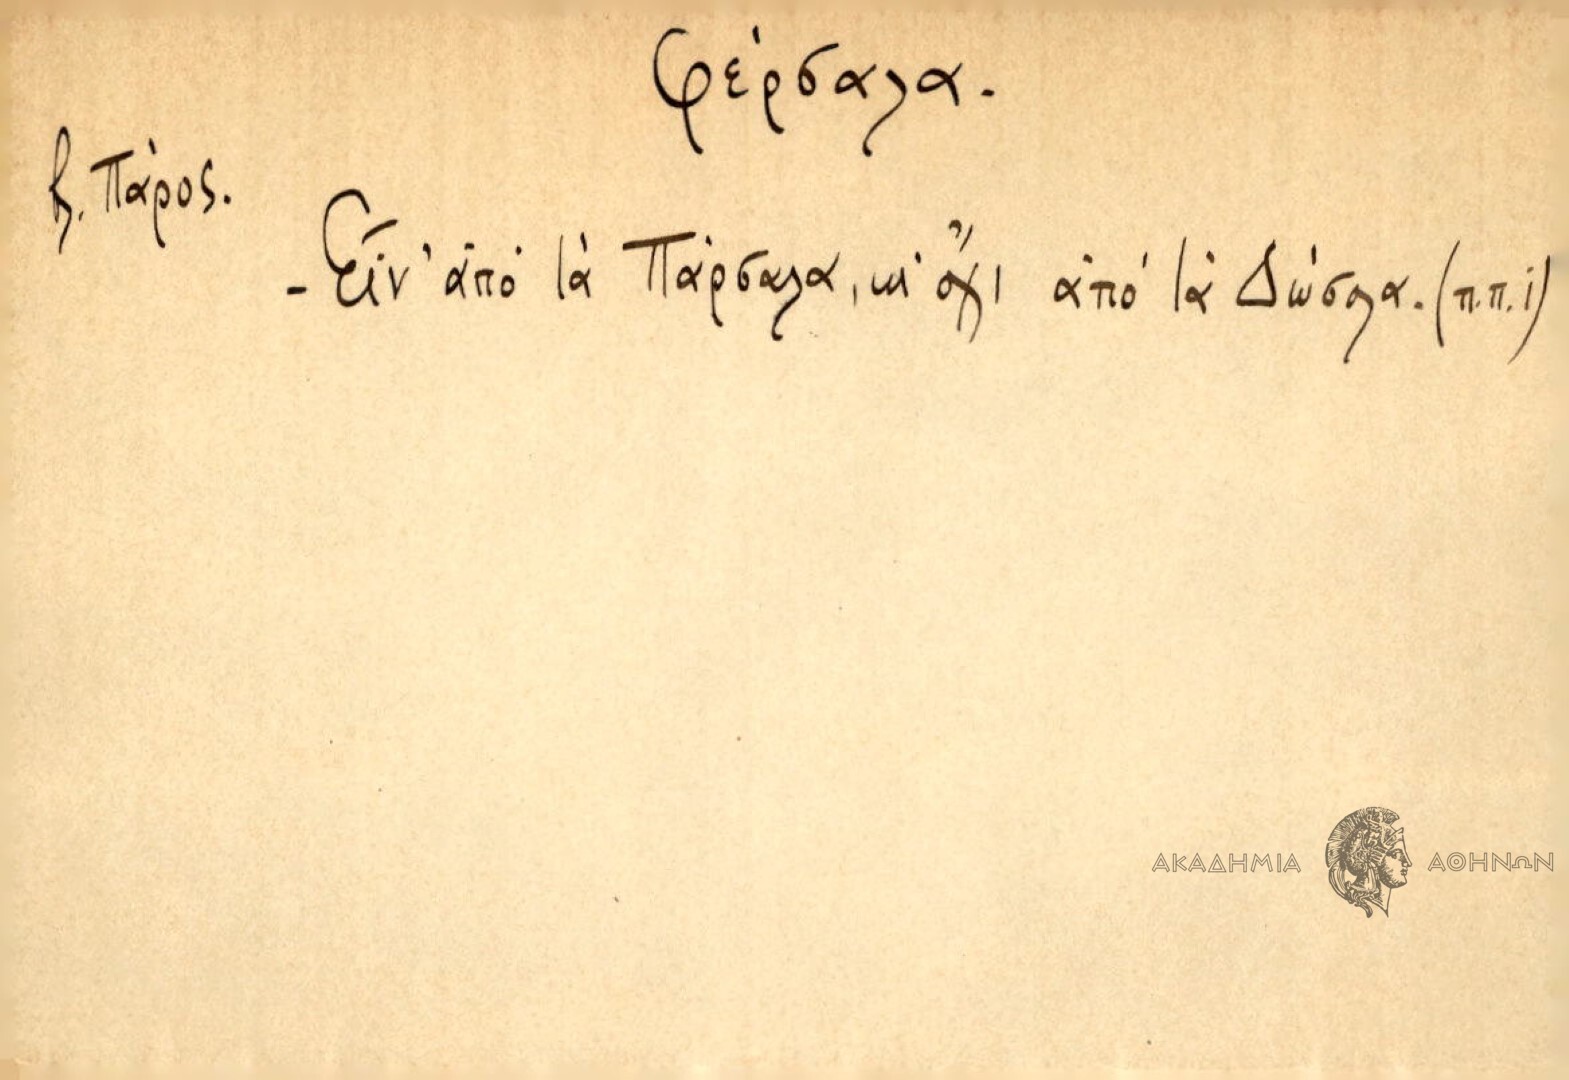 Φέρσαλα.
β. Πάρος.
- Εἶν' ἀπὸ τὰ Πάρσαλα, κι' ὄχι ἀπὸ τὰ Δώσαλα. (π.π. i)
ΑΚΑΔΗΜΙΑ ΑΘΗΝΩΝ